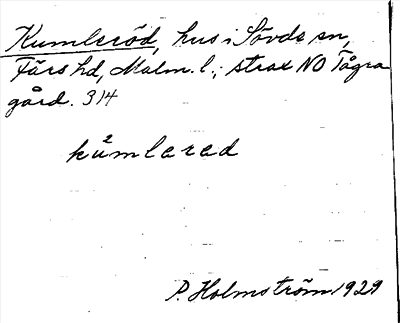 Kumleröd, hus i Sövde sn,
Färs hd, Malm. l.; strax NO Tågra
gård. 314
kumlarad
P. Holmström 1929